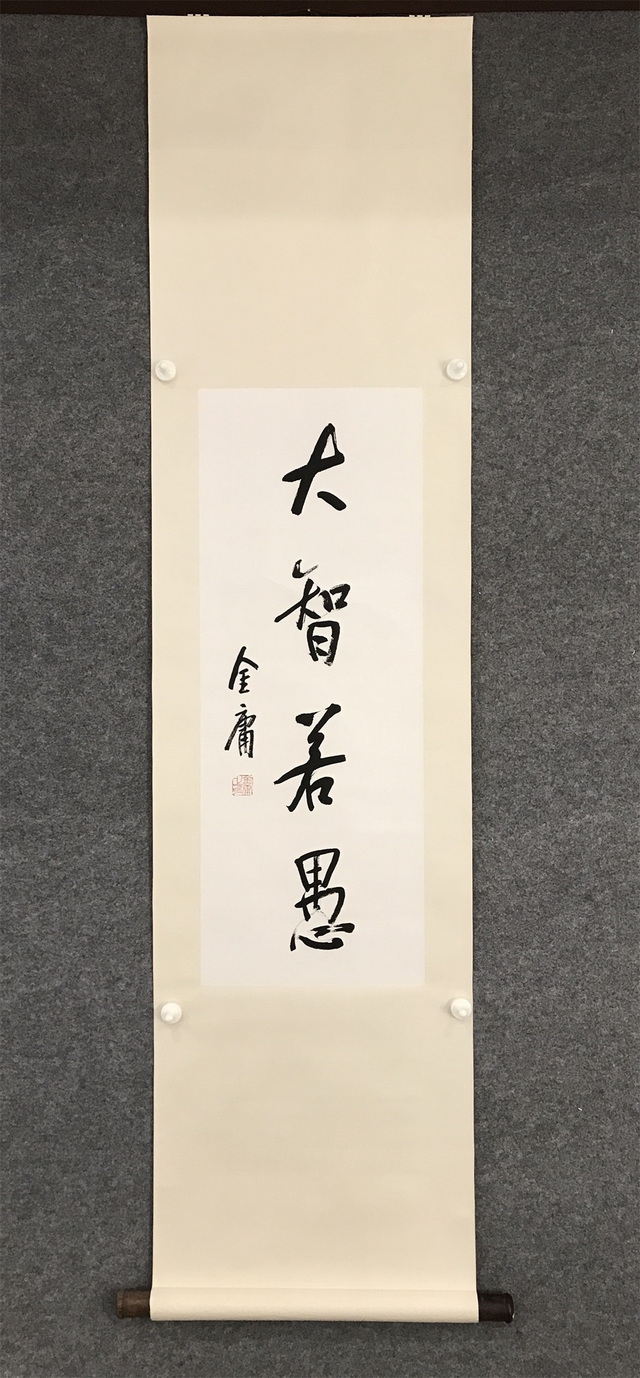 大智若愚
金庸